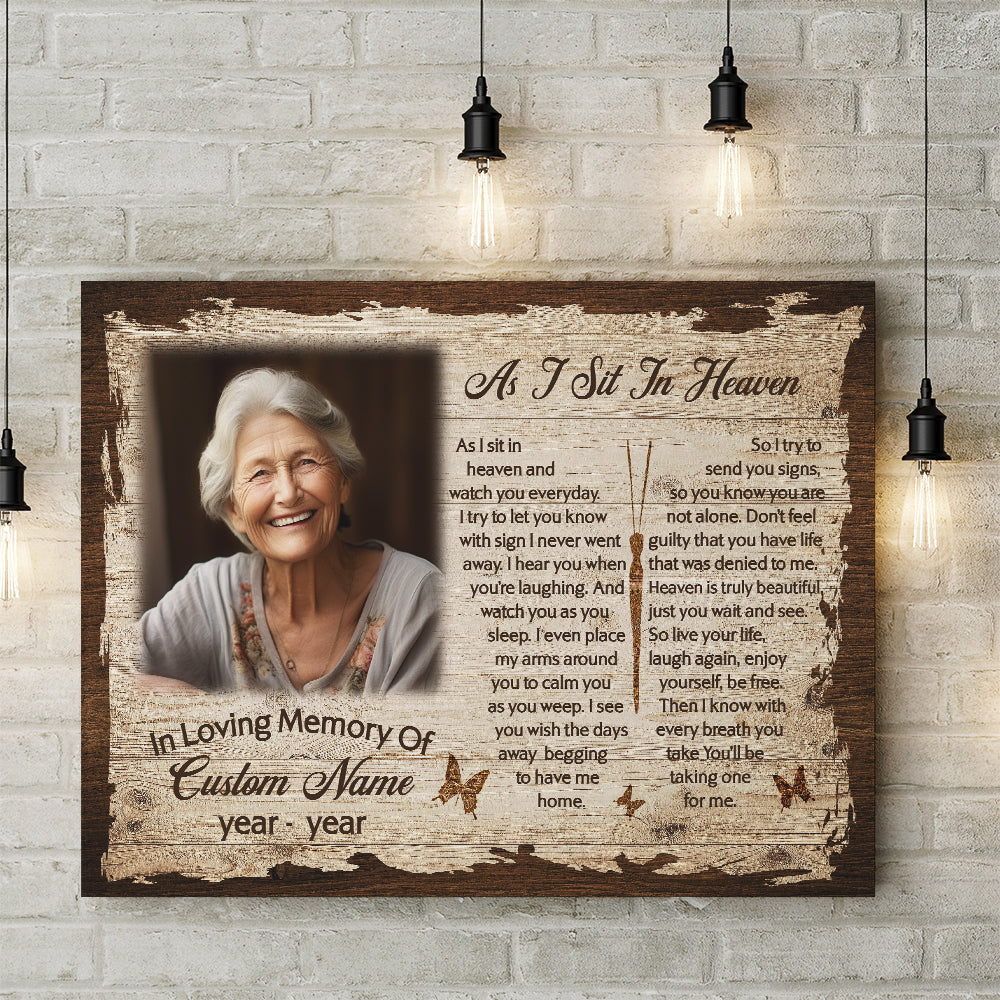 As I Sit In Heaven
As I sit in
heaven and
watch you everyday.
I try to let you know
with sign I never went
away. I hear you when
you're laughing. And
watch you as you
sleep. I even place
my arms around
you to calm you
as you weep. I see
you wish the days
away begging
to have me
home.
So I try to
send you signs,
so you know you are
not alone. Don't feel
guilty that you have life
that was denied to me.
Heaven is truly beautiful,
just you wait and see.
So live your life,
laugh again, enjoy
yourself, be free.
Then I know with
every breath you
take You'll be
taking one
for me.
In Loving Memory Of
Custom Name
year - year